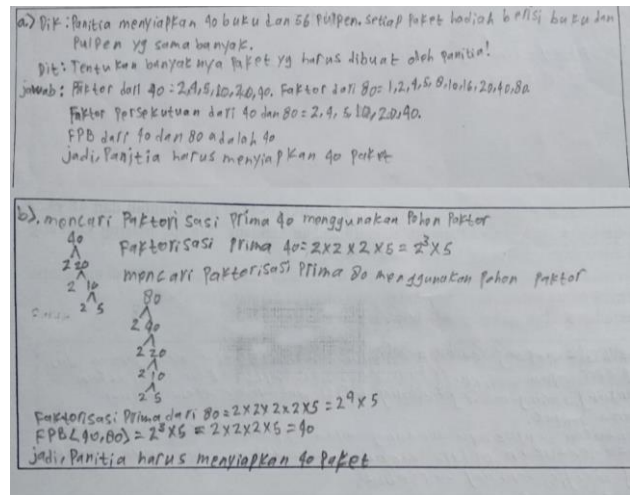 a) Dik : Panitia menyiapkan 40 buku dan 56 pulpen. setiap Paket hadiah berisi buku dan
Pulpen yg sama banyak.
Dit : Tentukan banyaknya Paket yg harus dibuat oleh panitia!
jawab : Faktor dari 40 = 2,4,5,10,20,40. Faktor dari 80 = 1,2,4,5,8,10,16,20,40,80.
Faktor Persekutuan dari 40 dan 80 = 2, 4, 5, 10, 20, 40.
FPB dari 40 dan 80 adalah 40
jadi, Panitia harus menyiapkan 40 Paket
b). mencari Faktorisasi Prima 40 menggunakan Pohon Faktor
40
Faktorisasi Prima 40 = 2 x 2 x 2 x 5 = 2³ x 5
2 20
mencari Faktorisasi Prima 80 menggunakan Pohon Faktor
2 10
2 5
80
2 40
2 20
2 10
2 5
Faktorisasi Prima dari 80 = 2 x 2 x 2 x 2 x 5 = 2⁴ x 5
FPB (40, 80) = 2³ x 5 = 2 x 2 x 2 x 5 = 40
jadi, Panitia harus menyiapkan 40 Paket